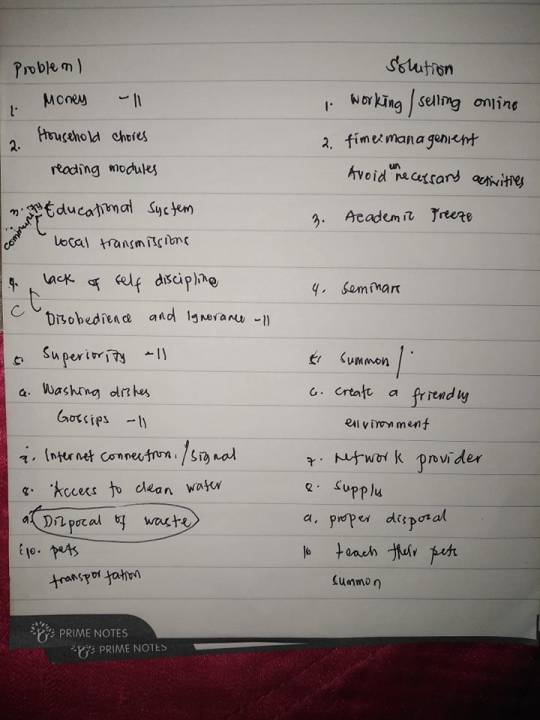 Problem 1
Solution
1. Money -11
1. working / selling online
2. Household chores
2. time management
reading modules
Avoid unnecessary activities
3. Educational System
3. Academic Freeze
community
Local transmissions
4. lack of self discipline
4. Seminars
C
Disobedience and Ignorance -11
5. Superiority -11
5. Summon /
6. Washing dishes
6. Create a friendly
Gossips -11
environment
7. Internet connection. / Signal
7. Network provider
8. Access to clean water
8. Supply
9. Disposal of waste
9. proper disposal
10. pets
10 teach their pets
transportation
summon
PRIME NOTES
PRIME NOTES